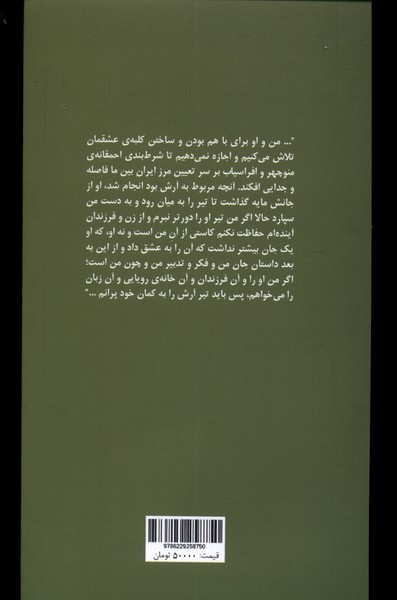 "... من و او برای با هم بودن و ساختن کلبه‌ی عشقمان
تلاش می‌کنیم و اجازه نمی‌دهیم تا شرط‌بندی احمقانه‌ی
منوچهر و افراسیاب بر سر تعیین مرز ایران بین ما فاصله
و جدایی افکند. آنچه مربوط به آرش بود انجام شد، او از
جانش مایه گذاشت تا تیر را به میان رود و به دست من
سپارد حالا اگر من تیر او را دورتر نبرم و از زن و فرزندان
آینده‌ام حفاظت نکنم کاستی از آن من است و نه او، که او
یک جان بیشتر نداشت که آن را به عشق داد و از این به
بعد داستان جان من و فکر و تدبیر من و چون من است؛
اگر من او را و آن فرزندان و آن خانه‌ی رویایی و آن زبان
را می‌خواهم، پس باید تیر آرش را به کمان خود پرانم ..."
9786229258750
قیمت: ۵۰۰۰۰ تومان